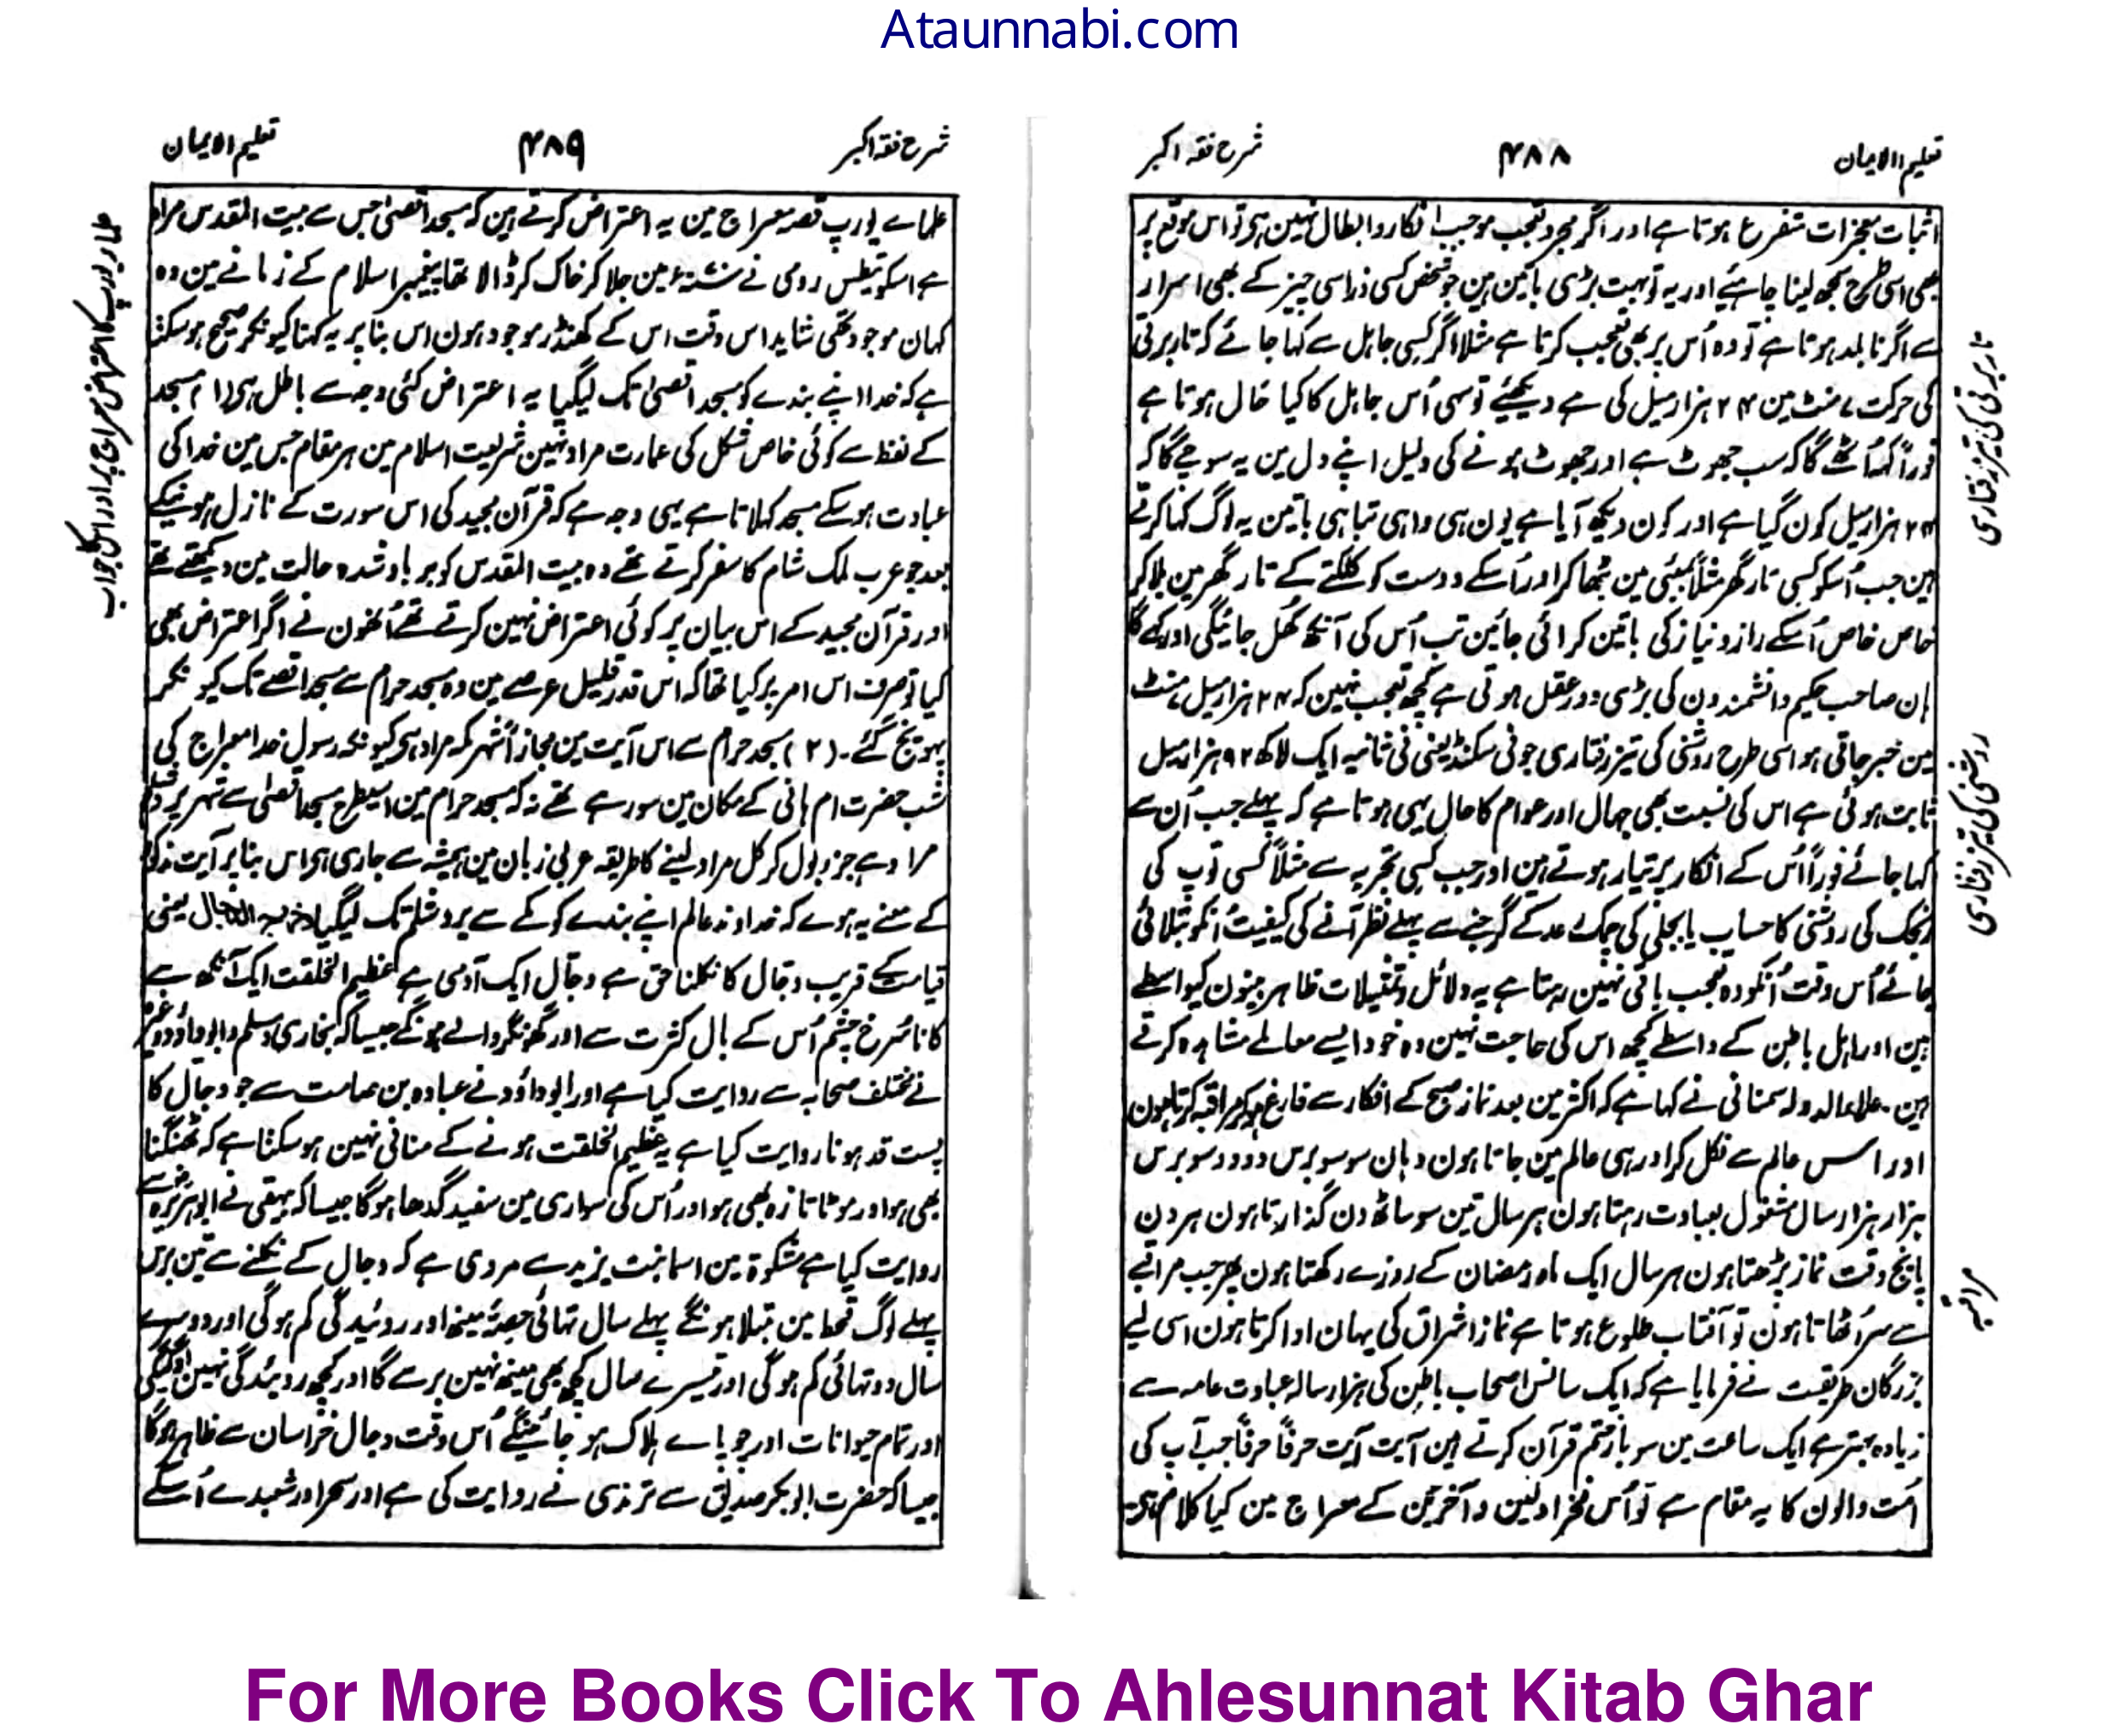 Ataunnabi.com
تعلیم الایمان ۴۸۸ شرح فقہ اکبر
اثبات معجزات متفرع ہوتا ہے اور اگر مجرد تعجب موجب انکار و ابطال نہین ہی تو اس موقع پر
بھی اسی طرح سمجھ لینا چاہئے اور یہ تو بہت بڑی باتین ہین جو شخص کسی ذرا سی چیز کے بھی اسرار
سے اگر نابلد ہوتا ہے تو وہ اُس پر بھی تعجب کرتا ہے مثلا اگر کسی جاہل سے کہا جائے کہ تار برقی
کی حرکت ۷ منٹ مین ۲۴ ہزار میل کی ہے دیکھئے توسہی اُس جاہل کا کیا حال ہوتا ہے
فوراً کہہ اُٹھے گا کہ سب جھوٹ ہے اور جھوٹ ہونے کی دلیل اپنے دل مین یہ سوچے گا کہ
۲۴ ہزار میل کون گیا ہے اور کون دیکھ آیا ہے یون ہی واہی تباہی باتین یہ لوگ کہا کرتے
ہین جب اُسکو کسی تار گھر مثلاً بمبئی مین بٹھا کر اور اُسکے دوست کو کلکتے کے تار گھر مین بلا کر
خاص خاص اُسکے راز و نیاز کی باتین کرائی جائین تب اُس کی آنکھ کھُل جائیگی اور کہے گا
ہان صاحب حکیم و دانشمندون کی بڑی دور عقل ہوتی ہے کچھ تعجب نہین کہ ۲۴ ہزار میل ۷ منٹ
مین خبر جاتی ہو اسی طرح روشنی کی تیز رفتاری جو فی سکنڈ یعنی فی ثانیہ ایک لاکھ ۹۲ ہزار میل
ثابت ہوئی ہے اس کی نسبت بھی جہال اور عوام کا حال یہی ہوتا ہے کہ پہلے جب اُن سے
کہا جائے فوراً اُس کے انکار پر تیار ہوتے ہین اور جب کسی تجربہ سے مثلاً کسی توپ کی
رنجک کی روشنی کا حساب یا بجلی کی چمک رعد کے گرجنے سے پہلے نظر آنے کی کیفیت اُنکو بتلائی
جائے اُس وقت اُنکو وہ تعجب باقی نہین رہتا ہے یہ دلائل و تمثیلات ظاہر بینون کیواسطے
ہین اور اہل باطن کے واسطے کچھ اس کی حاجت نہین وہ خود ایسے معاملے مشاہدہ کرتے
ہین۔ علاء الدولہ سمنانی نے کہا ہے کہ اکثر مین بعد نماز صبح کے افکار سے فارغ ہو کر مراقبہ کرتا ہون
اور اس عالم سے نکل کر اور ہی عالم مین جاتا ہون وہان سو سو برس دو دو سو برس
ہزار ہزار سال مشغول بعبادت رہتا ہون ہر سال تین سو ساٹھ دن گذارتا ہون ہر دن
پانچ وقت نماز پڑھتا ہون ہر سال ایک ماہ رمضان کے روزے رکھتا ہون پھر جب مراقبے
سے سر اُٹھاتا ہون تو آفتاب طلوع ہوتا ہے نماز اشراق کی یہان ادا کرتا ہون اسی لیے
بزرگان طریقت نے فرمایا ہے کہ ایک سانس اصحاب باطن کی ہزار سالہ عبادت عامہ سے
زیادہ بہتر ہے ایک ساعت مین سو بار ختم قرآن کرتے ہین آیت آیت حرفاً حرفاً جب آپ کی
اُمت والون کا یہ مقام ہے تو اُس فخر اولین و آخرین کے معراج مین کیا کلام ہے
تار برقی کی تیز رفتاری
روشنی کی تیز رفتاری
مراقبہ
شرح فقہ اکبر ۴۸۹ تعلیم الایمان
علماے یورپ قصہ معراج مین یہ اعتراض کرتے ہین کہ مسجد اقصیٰ جس سے بیت المقدس مراد
ہے اسکو ٹیطس رومی نے سنہ ۷۰ء مین جلا کر خاک کر ڈالا تھا پیغمبر اسلام کے زمانے مین وہ
کہان موجود تھی شاید اس وقت اس کے کھنڈر موجود ہون اس بنا پر یہ کہنا کیونکر صحیح ہو سکتا
ہے کہ خدا اپنے بندے کو مسجد اقصیٰ تک لیگیا یہ اعتراض کئی وجہ سے باطل ہی (۱) مسجد
کے لفظ سے کوئی خاص شکل کی عمارت مراد نہین شریعت اسلام مین ہر مقام جس مین خدا کی
عبادت ہو سکے مسجد کہلاتا ہے یہی وجہ ہے کہ قرآن مجید کی اس سورت کے نازل ہونیکے
بعد جو عرب ملک شام کا سفر کرتے تھے وہ بیت المقدس کو برباد شدہ حالت مین دیکھتے تھے
اور قرآن مجید کے اس بیان پر کوئی اعتراض نہین کرتے تھے اُنھون نے اگر اعتراض بھی
کیا تو صرف اس امر پر کیا تھا کہ اس قدر قلیل عرصے مین وہ مسجد حرام سے مسجد اقصے تک کیونکر
پہونچ گئے۔ (۲) مسجد حرام سے اس آیت مین مجازاً شہر مکہ مراد ہی کیونکہ رسول خدا معراج کی
شب حضرت ام ہانی کے مکان مین سو رہے تھے نہ کہ مسجد حرام مین اسیطرح مسجد اقصیٰ سے شہر یروشلم
مراد ہے جز بول کر کل مراد لینے کا طریقہ عربی زبان مین ہمیشہ سے جاری ہی اس بنا پر آیت مذکور
کے معنے یہ ہوے کہ خداوند عالم اپنے بندے کو مکے سے یروشلم تک لیگیا خروج الدجال یعنی
قیامت کے قریب دجال کا نکلنا حق ہے دجال ایک آدمی ہے عظیم الخلقت ایک آنکھ سے
کانا سُرخ چشم اُس کے بال کثرت سے اور گھونگر والے ہونگے جیسا کہ بخاری و مسلم و ابو داؤد وغیرہ
نے مختلف صحابہ سے روایت کیا ہے اور ابو داؤد نے عبادہ بن صامت سے جو دجال کا
پست قد ہونا روایت کیا ہے یہ عظیم الخلقت ہونے کے منافی نہین ہو سکتا ہے کہ ٹھنگنا
بھی ہو اور موٹا تازہ بھی ہو اور اُس کی سواری مین سفید گدھا ہوگا جیسا کہ بیہقی نے ابو ہریرہ سے
روایت کیا ہے مشکوۃ مین اسما بنت یزید سے مروی ہے کہ دجال کے نکلنے سے تین برس
پہلے لوگ قحط مین مبتلا ہونگے پہلے سال تہائی حصہ مینھ اور روئیدگی کم ہوگی اور دوسرے
سال دو تہائی کم ہوگی اور تیسرے سال کچھ بھی مینھ نہین برسے گا اور کچھ روئیدگی نہین اُگیگی
اور تمام حیوانات اور چوپاے ہلاک ہو جائینگے اُس وقت دجال خراسان سے ظاہر ہوگا
جیسا کہ حضرت ابو بکر صدیق سے ترمذی نے روایت کی ہے اور سحر اور شعبدے اُسکے
علماے یورپ کا اعتراض معراج پر اور اس کا جواب
For More Books Click To Ahlesunnat Kitab Ghar